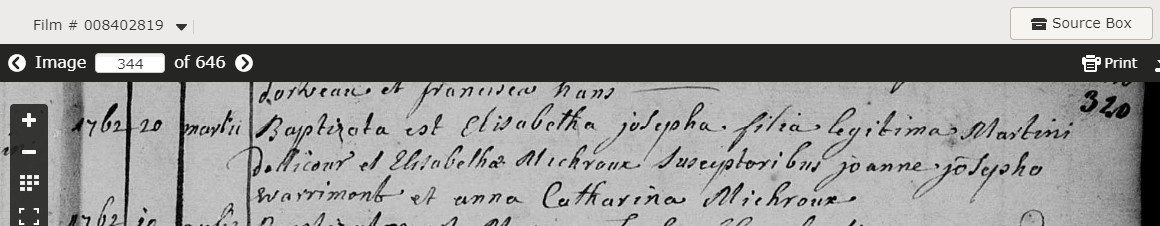 Film # 008402819
Source Box
Image 344 of 646
Print
et francisca hans
320
1762 20 martii Baptizata est Elisabetha josepha filia legitima Martini
dollicour et Elisabethæ Michroux susceptoribus joanne josepho
warrimont et anna Catharina Michroux
1762